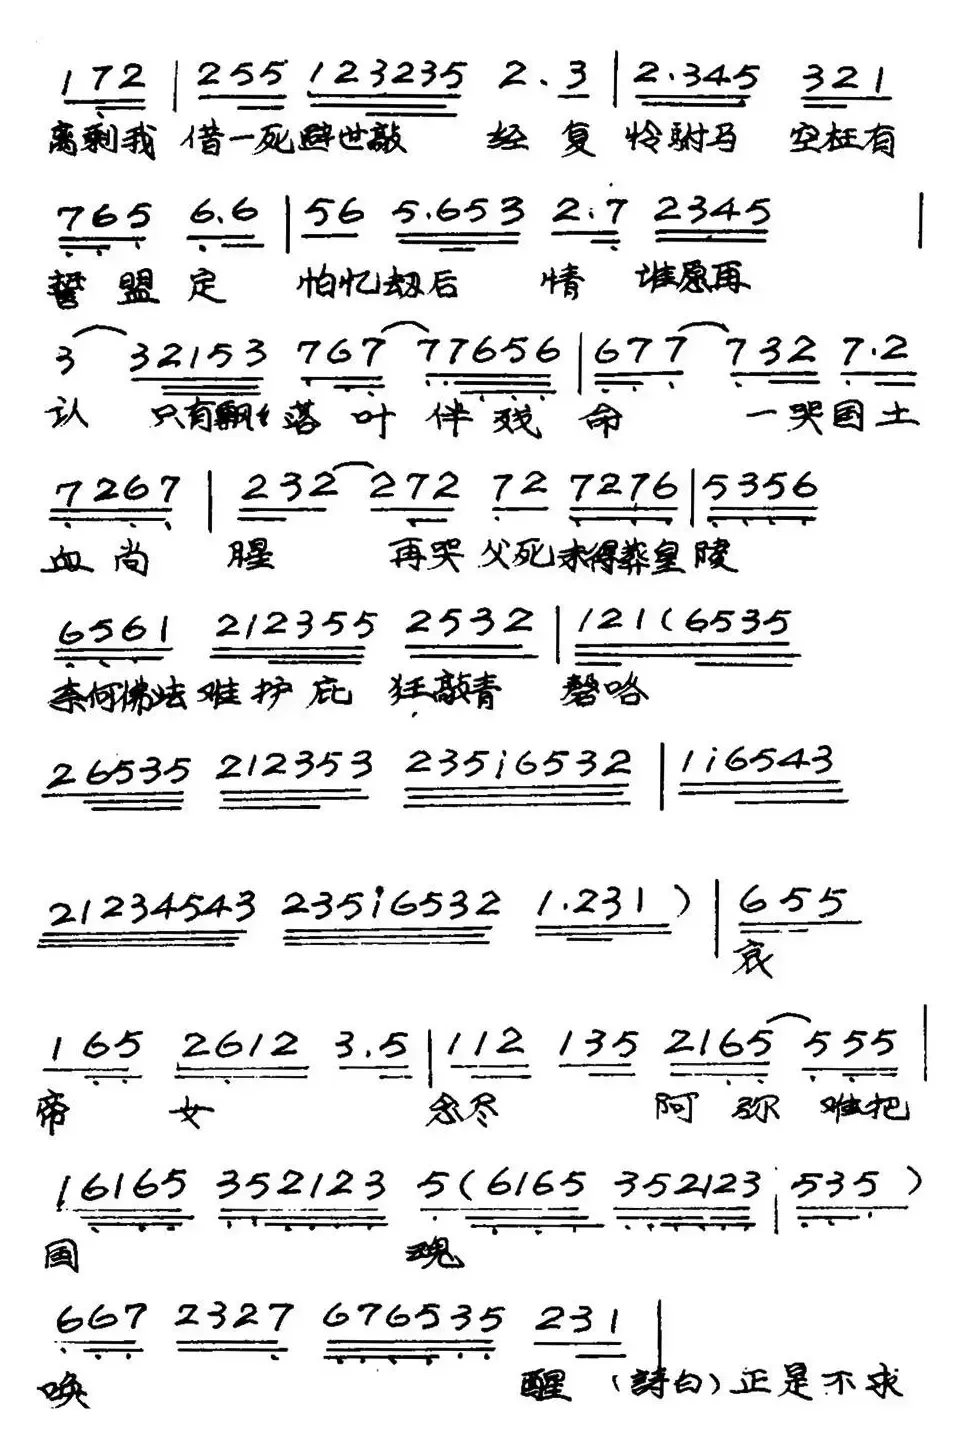 172 | 255 123235 2.3 | 2.345 321
离剩我 借一死避世敲 经 复 怜驸马 空枉有
765 6.6 | 56 5.653 2.7 2345 |
誓盟定 怕忆劫后 情 谁愿再
3 32153 767 77656 | 677 732 7.2
认 只有飘飘落叶伴残命 一哭国土
7267 | 232 272 72 7276 | 5356
血尚 腥 再哭父死未得葬皇陵
6561 212355 2532 | 121(6535
奈何佛法难护庇 狂敲青 磬咯
26535 212353 235i6532 | 1i6543
21234543 235i6532 1.231) | 655
哀
165 2612 3.5 | 112 135 2165 555 |
帝 女 念尽 阿弥 难把
16165 352123 5(6165 352123 | 535)
国 魂
667 2327 676535 231 |
唤 醒 (詩白)正是不求